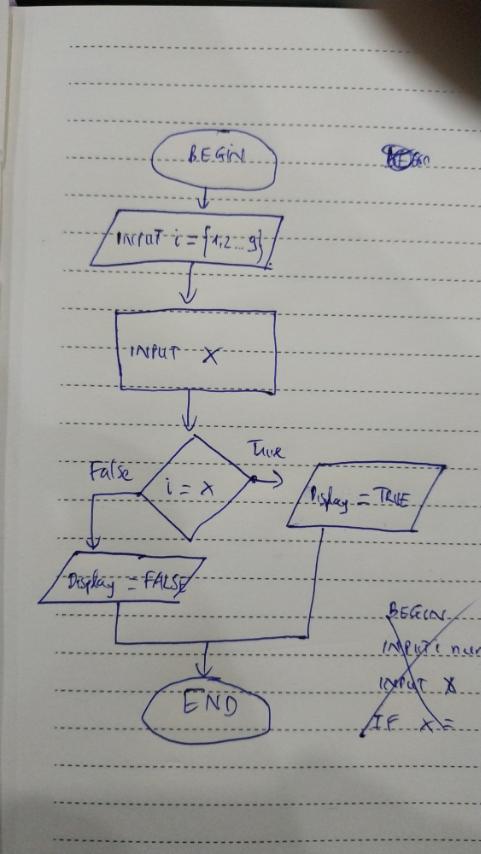 BEGIN
INPUT i = {1,2...9}
INPUT X
True
False
i = x
Display = TRUE
Display = FALSE
BEGIN
INPUT i num
INPUT X
IF X =
END